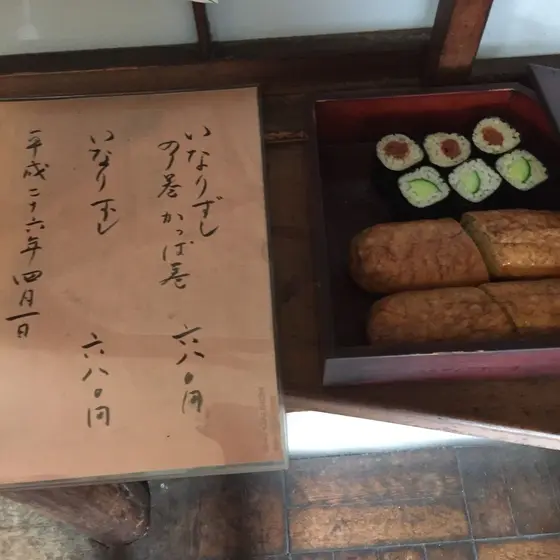 いなりずし
のり巻 かっぱ巻 六八〇円
いなりずし 六八〇円
平成二十六年四月一日